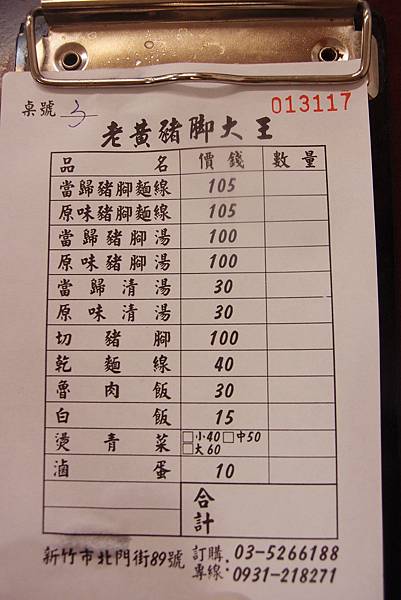 桌號
013117
老黃豬腳大王
品名 價錢 數量
當歸豬腳麵線 105
原味豬腳麵線 105
當歸豬腳湯 100
原味豬腳湯 100
當歸清湯 30
原味清湯 30
切豬腳 100
乾麵線 40
魯肉飯 30
白飯 15
燙青菜 □小40□中50
□大60
滷蛋 10
合計
新竹市北門街89號 訂購專線:03-5266188
0931-218271